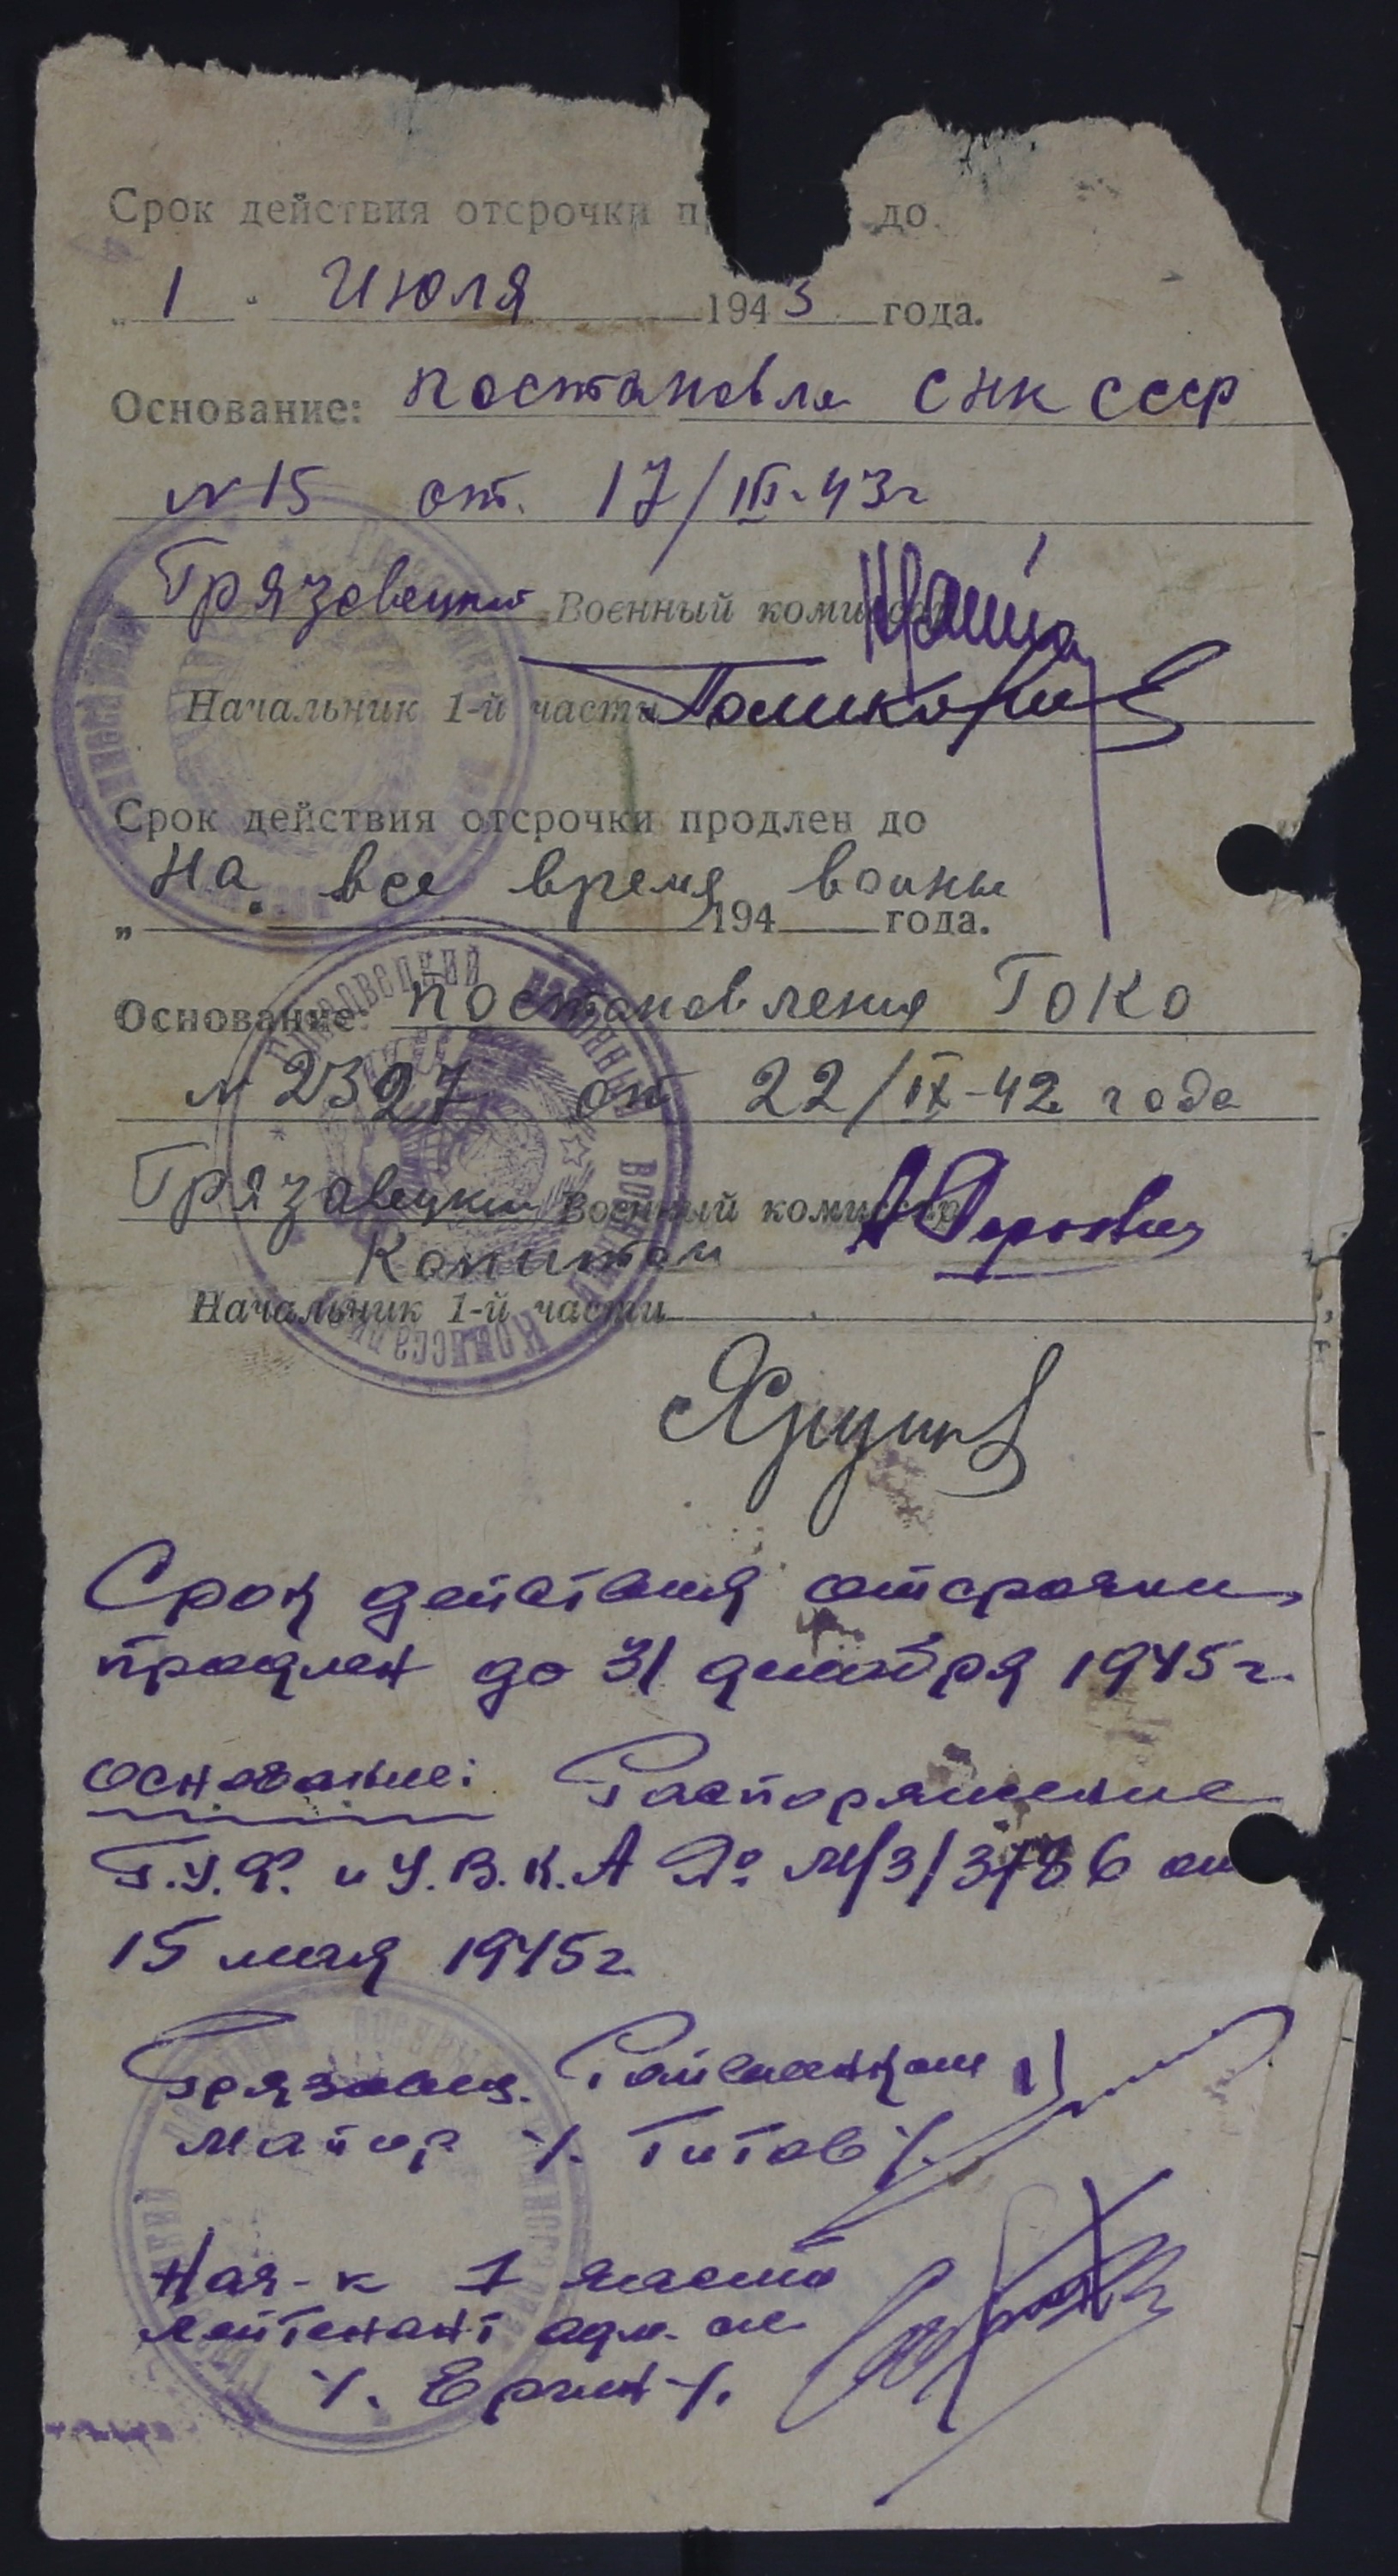 Срок действия отсрочки п до
„ 1 " Июля 1943 года.
Основание: постановле СНК СССР
№ 15 от. 17/III-43г
Грязовецкий Военный комиссар
Начальник 1-й части
Срок действия отсрочки продлен до
На все время воины
„ 194 года.
Основание: постановления ГОКО
№ 2327 от 22/IX-42 года
Грязовецкий Военный комиссар
Капитан
Начальник 1-й части
Срок действия отсрочки
продлен до 31 декабря 1945 г.
основание: Распоряжение
Г.У.Ф. и У.В.К.А № М/3/3786 от
15 мая 1945г.
Грязовец. Райвоенком
Майор /. Титов /.
Нач-к 1 части
лейтенант адм. сл.
/. Ерчин /.